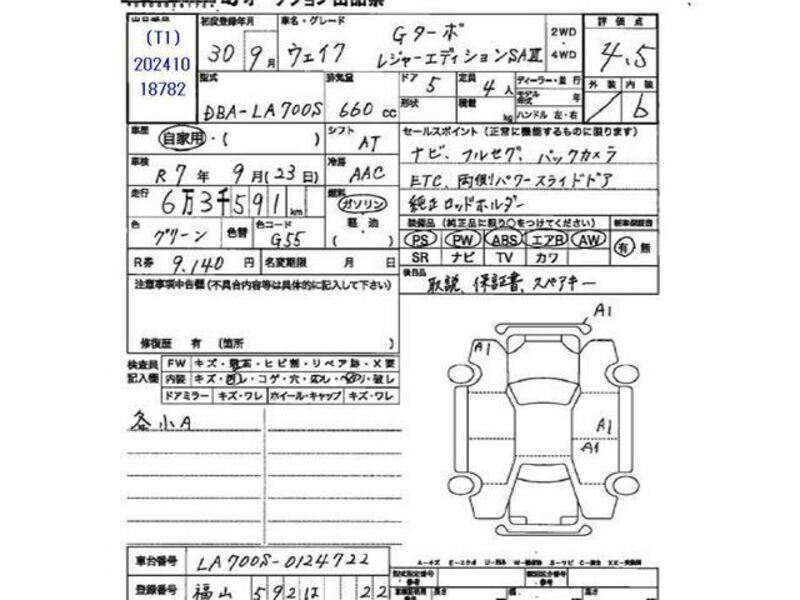 オークション出品票
(T1)
202410
18782
初度登録年月
30 9月
車名・グレード
ウェイク
Gターボ
レジャーエディションSAⅢ
2WD
4WD
評価点
4.5
外装 内装
b
型式
DBA-LA700S
排気量
660 cc
ドア 5
定員 4人
形状
積載 kg
ディーラー・並行
モデル年式 年
ハンドル 左・右
車歴
自家用・( )
シフト
AT
車検
R7年 9月(23日)
冷房
AAC
走行
6万3千591km
燃料
ガソリン
軽油
( )
色
グリーン
色替
色コード
G55
R券 9,140円
名変期限 月 日
セールスポイント(正常に機能するものに限ります)
ナビ、フルセグ、バックカメラ
ETC、両側パワースライドドア
純正ロッドホルダー
装備品(純正品に限り○をつけてください)
新車保証書
PS PW ABS エアB AW
有 無
SR ナビ TV カワ
後日品
取説、保証書、スペアキー
注意事項申告欄(不具合内容等は具体的に記入して下さい)
修復歴 有 (箇所 )
検査員
記入欄
FW キズ・飛石・ヒビ割・リペア跡・X要
内装 キズ・コゲ・穴・破し
ドアミラー キズ・ワレ ホイール・キャップ キズ・ワレ
各小A
A1
A1
A1
A1
車台番号
LA700S-0124722
登録番号
福山 592 は 22
A-キズ E-エクボ
型式指定番号
参考
類別区分番号
参考
長さ
幅
高さ